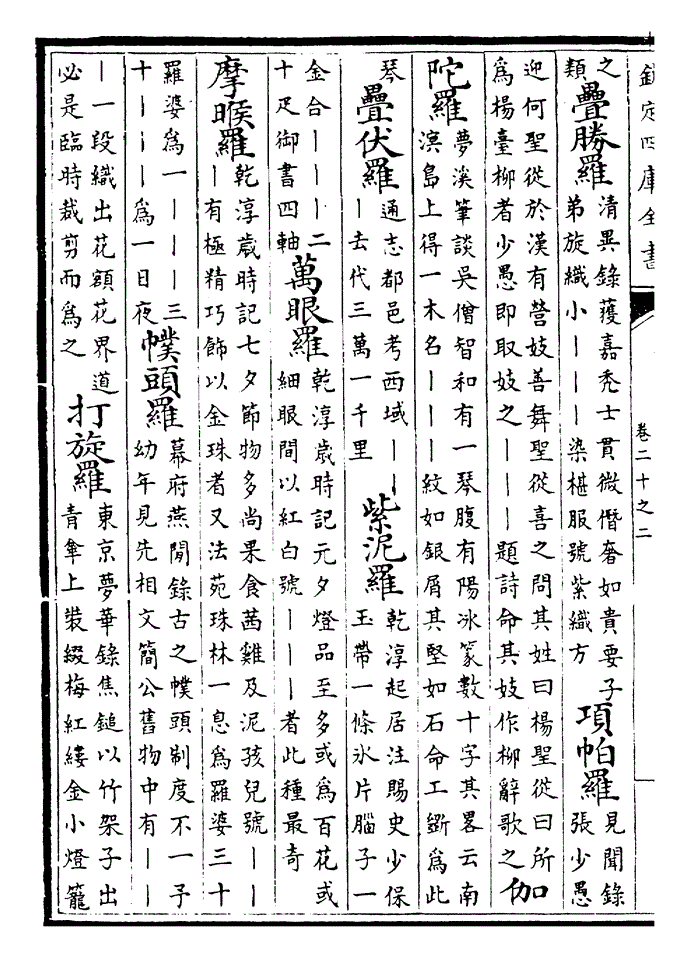 欽定四庫全書
卷二十之二
之類疊勝羅清異錄蒦嘉禿士貫微僭奢如貴要子弟旋織小｜｜｜染椹服號紫織方項帕羅見聞錄張少愚
迎何聖從於漢有營妓善舞聖從喜之問其姓曰楊聖從曰所為楊臺柳者少愚即取妓之｜｜｜題詩命其妓作柳辭歌之伽
陀羅夢溪筆談吳僧智和有一琴腹有陽冰篆數十字其畧云南溟島上得一木名｜｜｜紋如銀屑其堅如石命工斲為此
琴疊伏羅通志都邑考西域｜｜｜去代三萬一千里紫泥羅乾淳起居注賜史少保玉帶一條氷片腦子一
金合｜｜｜二十疋御書四軸萬眼羅乾淳歲時記元夕燈品至多或為百花或細眼間以紅白號｜｜｜者此種最奇
摩睺羅乾淳歲時記七夕節物多尚果食茜雞及泥孩兒號｜｜｜有極精巧飾以金珠者又法苑珠林一息為羅婆三十
羅婆為一｜｜｜三十｜｜｜為一日夜幞頭羅幕府燕閒錄古之幞頭制度不一子幼年見先相文簡公舊物中有｜｜
｜一段織出花額花界道必是臨時裁剪而為之打旋羅東京夢華錄焦鎚以竹架子出青傘上裝綴梅紅縷金小燈籠